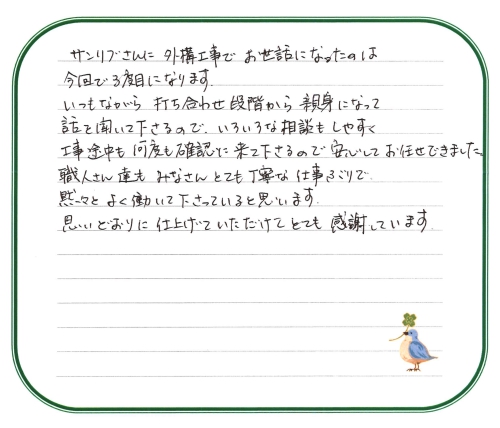 サンリブさんに 外構工事で お世話になったのは
今回で3度目になります。
いつもながら 打ち合わせ段階から 親身になって
話を聞いて下さるので、いろいろな相談もしやすく
工事途中も 何度も確認に来て下さるので安心してお任せできました
職人さん達も みなさん とても丁寧な 仕事ぶりで
黙々と よく働いて下さっていると思います。
思いどおりに 仕上げていただけて とても 感謝しています。